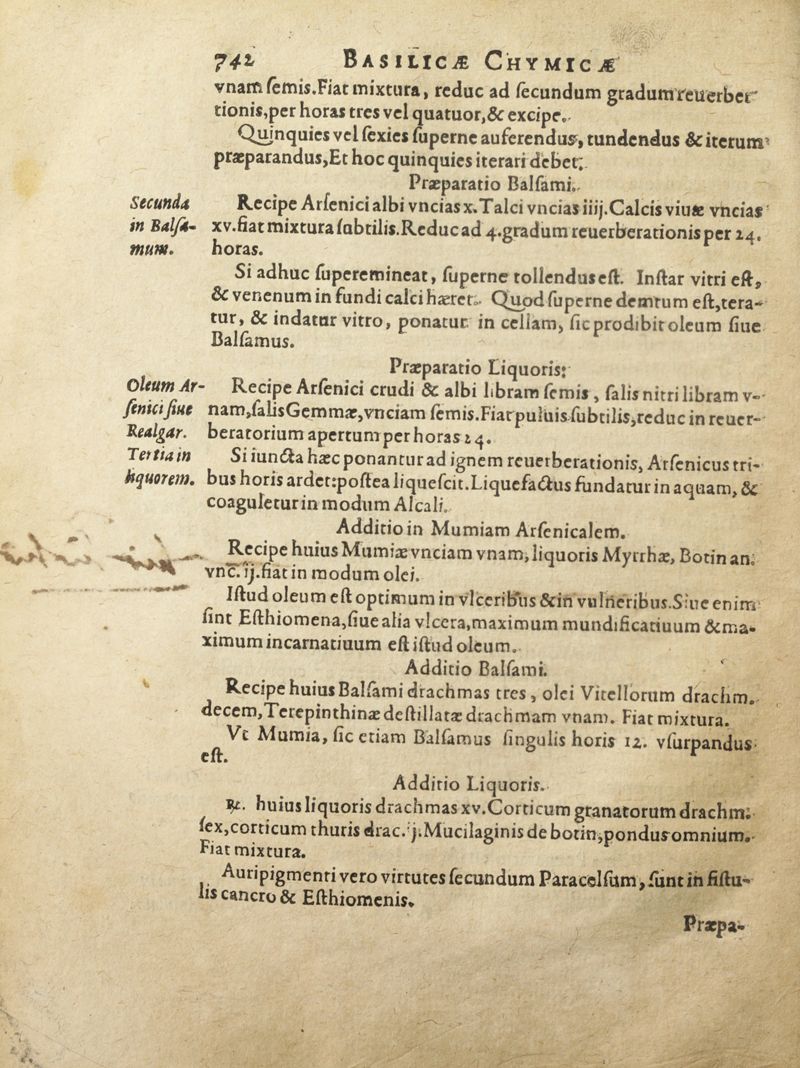 742 BASILICÆ CHYMICÆ
vnam ſemis. Fiat mixtura, reduc ad ſecundum gradum reuerber
tionis, per horas tres vel quatuor, & excipe.
Quinquies vel ſexies ſuperne auferendus, tundendus & iterum
præparandus, Et hoc quinquies iterari debet.
Præparatio Balſami.
Secunda
in Balſa-
mum.
Recipe Arſenici albi vncias x. Talci vncias iiij. Calcis viuæ vncias
xv. fiat mixtura ſubtilis. Reduc ad 4. gradum reuerberationis per 24.
horas.
Si adhuc ſuperemineat, ſuperne tollendus eſt. Inſtar vitri eſt,
& venenum in fundi calci hæret. Quod ſuperne demtum eſt, tera-
tur, & indatur vitro, ponatur in cellam, ſic prodibit oleum ſiue
Balſamus.
Præparatio Liquoris:
Oleum Ar-
ſenici ſiue
Realgar.
Tertia in
liquorem.
Recipe Arſenici crudi & albi libram ſemis, ſalis nitri libram v-
nam, ſalis Gemmæ, vnciam ſemis. Fiat puluis ſubtilis, reduc in reuer-
beratorium apertum per horas 24.
Si iuncta hæc ponantur ad ignem reuerberationis, Arſenicus tri-
bus horis ardet: poſtea liqueſcit. Liquefactus fundatur in aquam, &
coaguletur in modum Alcali.
Additio in Mumiam Arſenicalem.
Recipe huius Mumiæ vnciam vnam, liquoris Myrrhæ, Botin an.
vnc̄. ij. fiat in modum olei.
Iſtud oleum eſt optimum in vlceribus & in vulneribus. Siue enim
ſint Eſthiomena, ſiue alia vlcera, maximum mundificatiuum & ma-
ximum incarnatiuum eſt iſtud oleum.
Additio Balſami.
Recipe huius Balſami drachmas tres, olei Vitellorum drachm.
decem, Terepinthinæ deſtillatæ drachmam vnam. Fiat mixtura.
Vt Mumia, ſic etiam Balſamus ſingulis horis 12. vſurpandus
eſt.
Additio Liquoris.
℞. huius liquoris drachmas xv. Corticum granatorum drachm.
ſex, corticum thuris drac. j. Mucilaginis de botin, pondus omnium.
Fiat mixtura.
Auripigmenti vero virtutes ſecundum Paracelſum, ſunt in fiſtu-
lis cancro & Eſthiomenis.
Præpa-